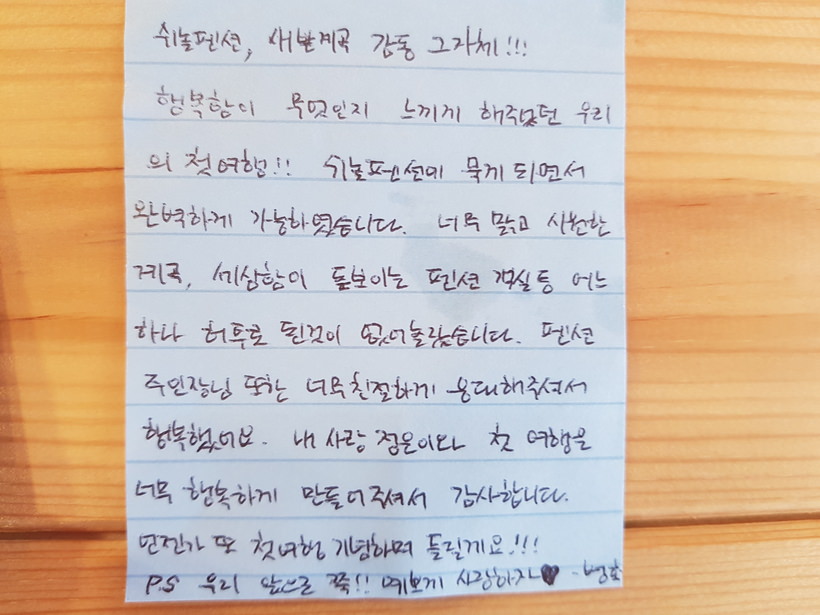 쉬놀펜션, 새밭계곡 감동 그자체!!!
행복함이 무엇인지 느끼게 해주었던 우리
의 첫여행!! 쉬놀펜션에 묵게 되면서
완벽하게 가능하였습니다. 너무 맑고 시원한
계곡, 세심함이 돋보이는 펜션 객실 등 어느
하나 허투로 된것이 없어놀랐습니다. 펜션
주인장님 또한 너무친절하게 응대해주셔서
행복했어요. 내 사랑 정은이와 첫 여행을
너무 행복하게 만들어주셔서 감사합니다.
언젠가 또 첫여행 기념하며 들릴게요!!!
P.S 우리 앞으로 쭉!! 예쁘게 사랑하자♥ -